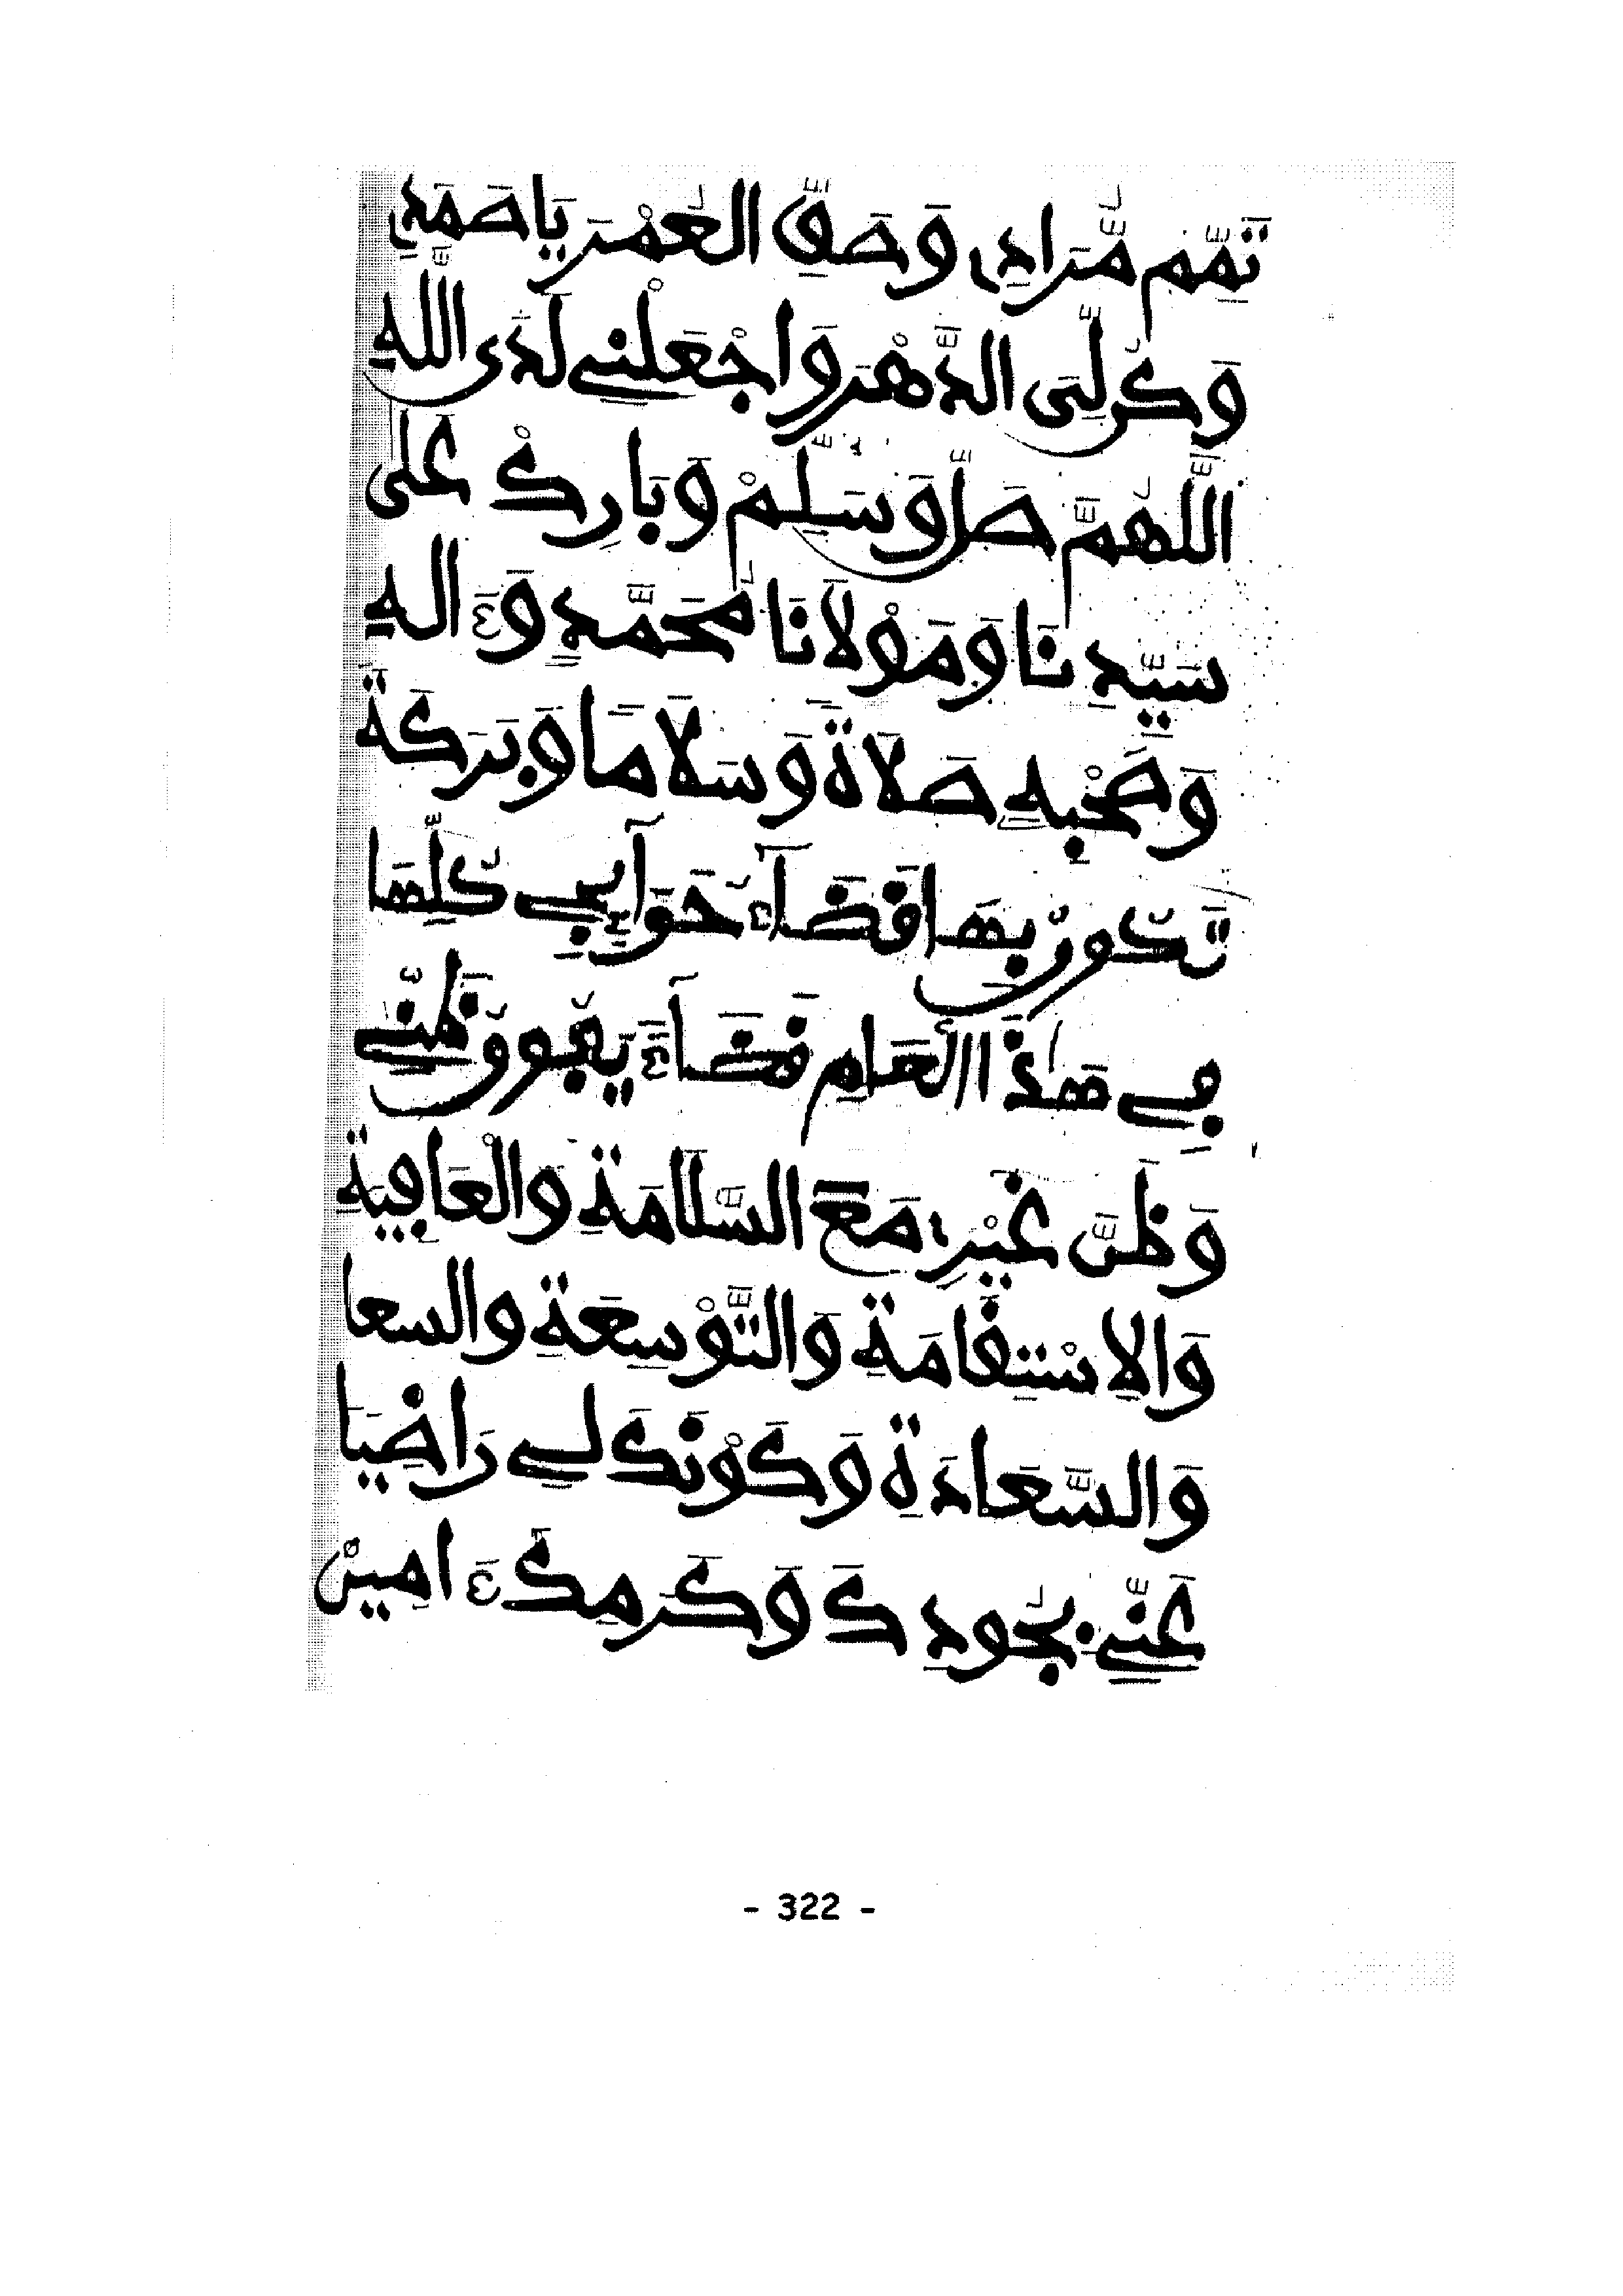 تَمِّمْ مُّرَادِي وَصَفِّ الْعُمْرَ يَاصَمَدِي
وَكُن لِّيَ الدَّهْرَ وَاجْعَلْنِي لَدَى اللَّهِ
اللَّهُمَّ صَلِّ وَسَلِّمْ وَبَارِكْ عَلَى
سَيِّدِنَا وَمَوْلَانَا مُحَمَّدٍ وَءَالِهِ
وَصَحْبِهِ صَلَاةً وَسَلَامًا وَبَرَكَةً
تَكُونُ بِهَا قَضَاءُ حَوَائِجِي كُلِّهَا
فِي هَذَا الْعَامِ قَضَاءً يَفُوقُ ظَنِّي
وَظَنَّ غَيْرِي مَعَ السَّلَامَةِ وَالْعَافِيَةِ
وَالِاسْتِقَامَةِ وَالتَّوْسِعَةِ وَالسعا
وَالسَّعَادَةِ وَكَوْنِكَ لِي رَاضِيًا
عَنِّي بِجُودِكَ وَكَرَمِكَ ءَامِينْ
- 322 -